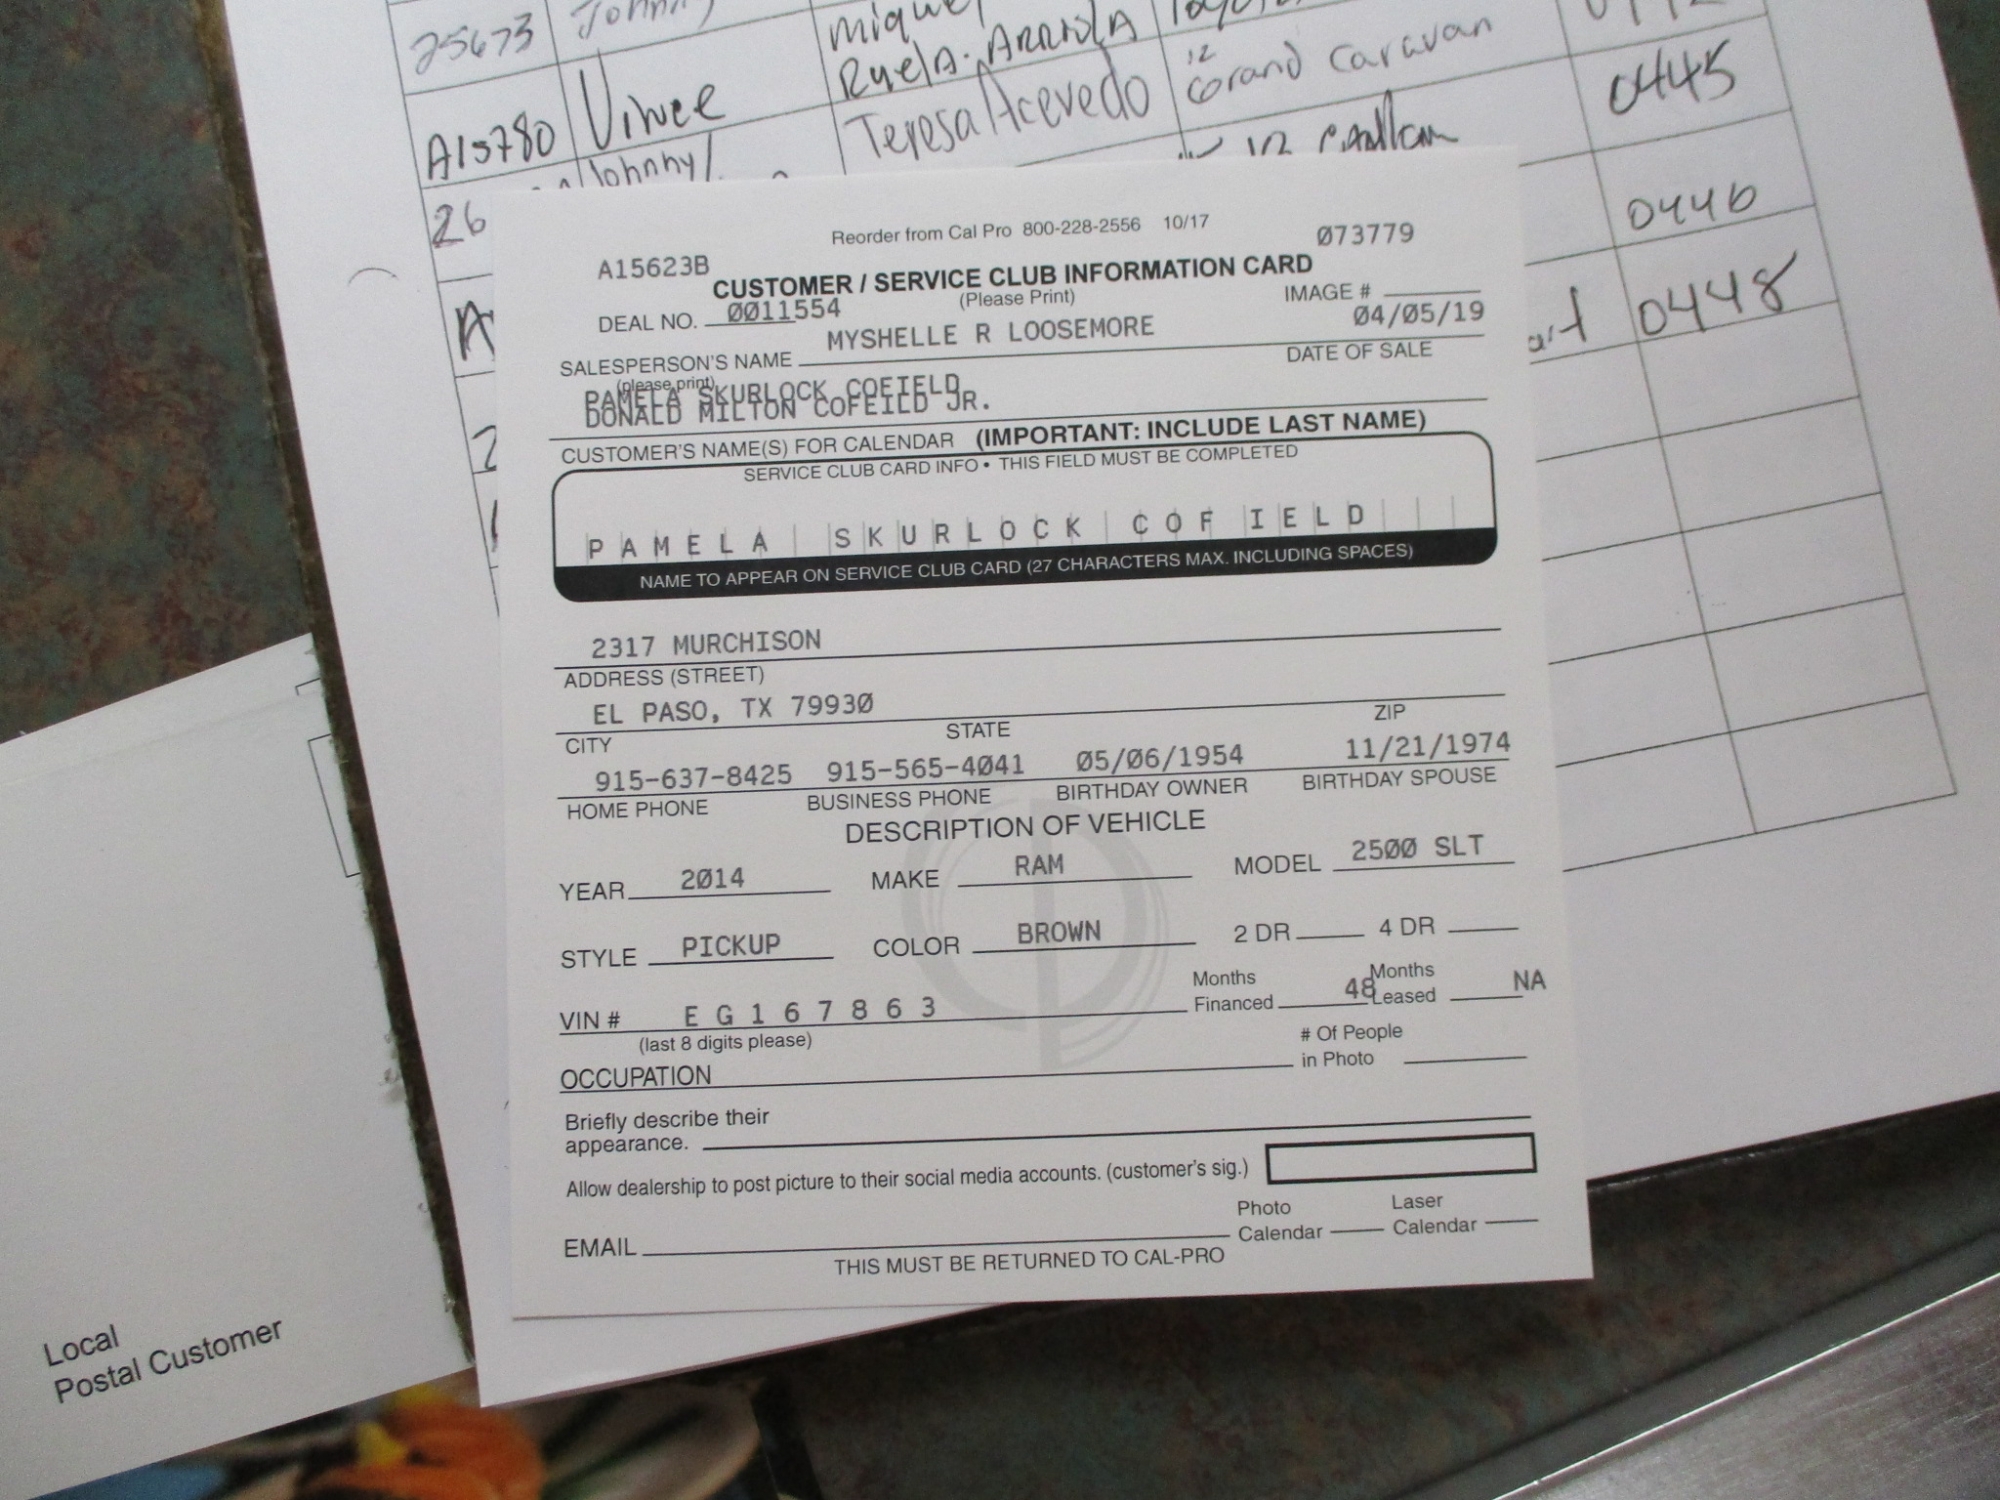 25673 Johnny Miquel Toyota
Ruela. Arriola
A15780 Vinee Teresa Acevedo 12 Grand Caravan 0445
Johnny/
26 0446
A 0448
Reorder from Cal Pro 800-228-2556 10/17
A15623B Ø73779
CUSTOMER / SERVICE CLUB INFORMATION CARD
(Please Print)
DEAL NO. ØØ11554 IMAGE #
SALESPERSON'S NAME MYSHELLE R LOOSEMORE Ø4/Ø5/19
(please print) DATE OF SALE
PAMELA SKURLOCK COFIELD
DONALD MILTON COFEILD JR.
CUSTOMER'S NAME(S) FOR CALENDAR (IMPORTANT: INCLUDE LAST NAME)
SERVICE CLUB CARD INFO • THIS FIELD MUST BE COMPLETED
PAMELA SKURLOCK COFIELD
NAME TO APPEAR ON SERVICE CLUB CARD (27 CHARACTERS MAX. INCLUDING SPACES)
2317 MURCHISON
ADDRESS (STREET)
EL PASO, TX 7993Ø
CITY STATE ZIP
915-637-8425 915-565-4Ø41 Ø5/Ø6/1954 11/21/1974
HOME PHONE BUSINESS PHONE BIRTHDAY OWNER BIRTHDAY SPOUSE
DESCRIPTION OF VEHICLE
YEAR 2Ø14 MAKE RAM MODEL 25ØØ SLT
STYLE PICKUP COLOR BROWN 2 DR 4 DR
VIN # EG167863 Months Financed 48 Months Leased NA
(last 8 digits please)
OCCUPATION # Of People in Photo
Briefly describe their
appearance.
Allow dealership to post picture to their social media accounts. (customer's sig.)
EMAIL Photo Calendar Laser Calendar
THIS MUST BE RETURNED TO CAL-PRO
Local
Postal Customer